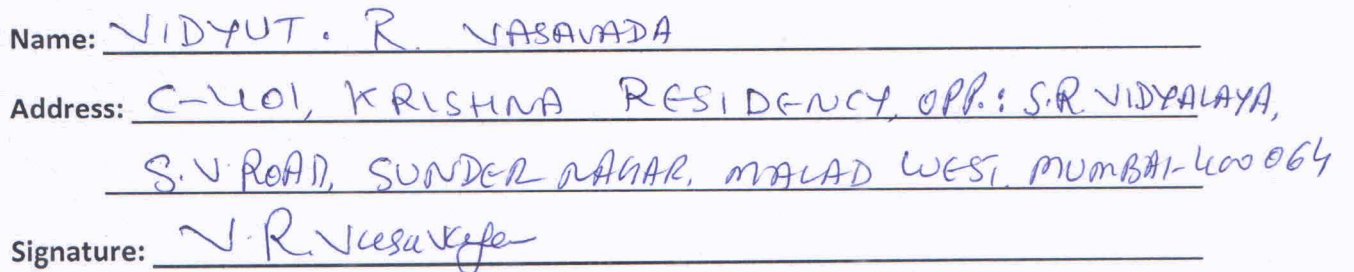 Name: VIDYUT. R. VASAVADA
Address: C-401, KRISHNA RESIDENCY, OPP.: S.R VIDYALAYA,
S.V ROAD, SUNDER NAGAR, MALAD WEST, MUMBAI-400064
Signature: V.R. Vasavada